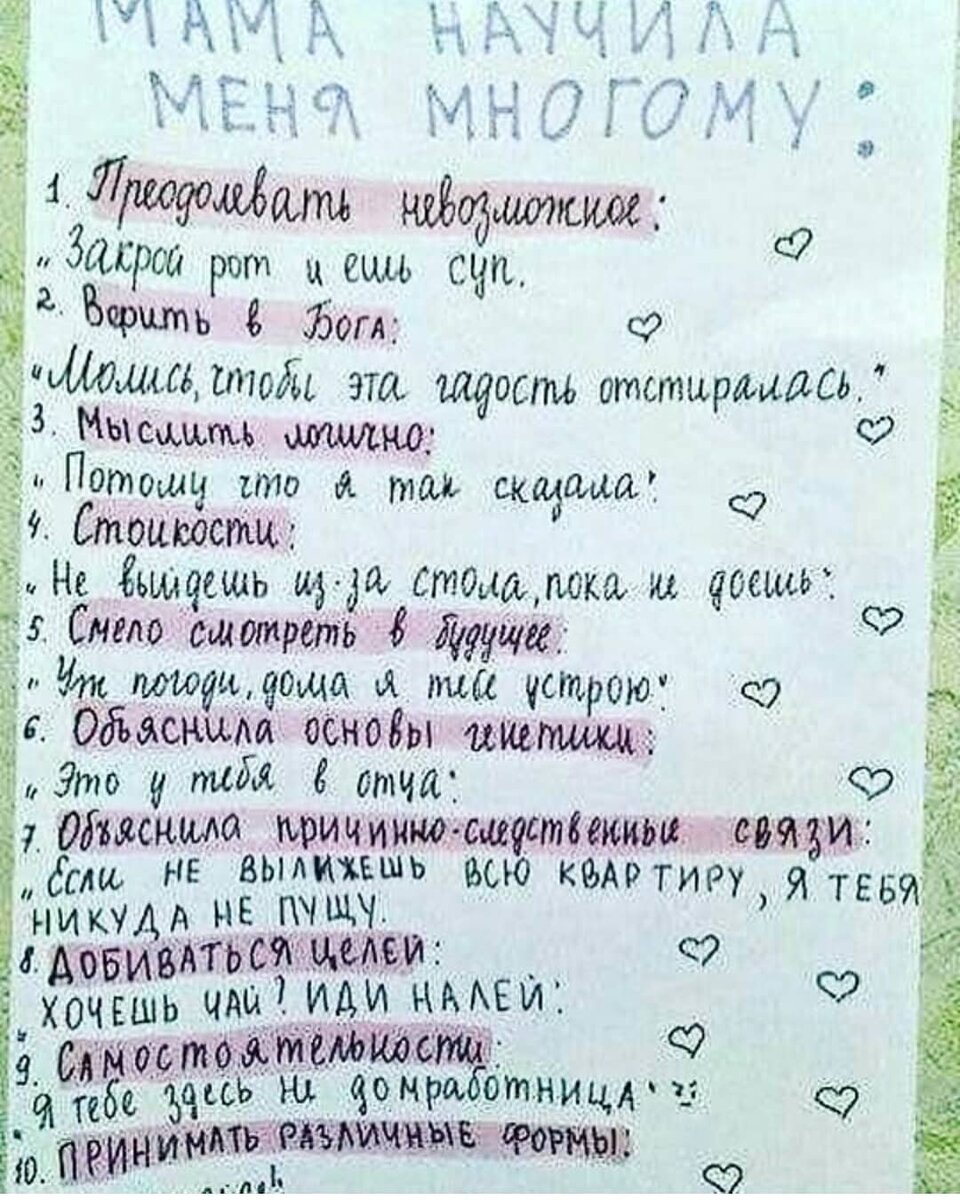 МАМА НАУЧИЛА
МЕНЯ МНОГОМУ:
1. Преодолевать невозможное:
„Закрой рот и ешь суп.
2. Верить в Бога:
"Молись, чтобы эта гадость отстиралась."
3. Мыслить логично:
„Потому что я так сказала"
4. Стойкости:
„Не выйдешь из-за стола, пока не доешь"
5. Смело смотреть в будущее:
„Уж погоди, дома я тебе устрою"
6. Объяснила основы генетики:
„Это у тебя в отца"
7. Объяснила причинно-следственные связи:
„Если НЕ ВЫЛИЖЕШЬ ВСЮ КВАРТИРУ, Я ТЕБЯ
НИКУДА НЕ ПУЩУ.
8. ДОБИВАТЬСЯ ЦЕЛЕЙ:
„ХОЧЕШЬ ЧАЙ? ИДИ НАЛЕЙ"
9. Самостоятельности:
„Я тебе здесь не домработница"
10. ПРИНИМАТЬ РАЗЛИЧНЫЕ ФОРМЫ: